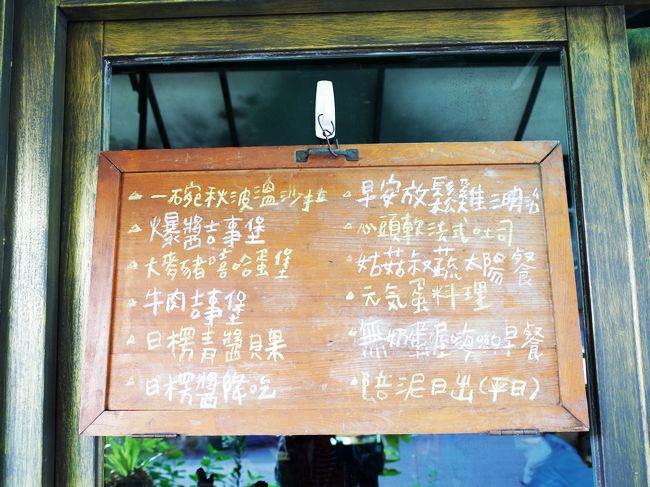 一碗秋波溫沙拉
爆醬吉事堡
大麥豬嘻哈蛋堡
牛肉吉事堡
日楞青醬貝果
日楞醬降吃
早安放鬆雞湯治
心頭軟法式吐司
姑菇叔蔬太陽餐
元気蛋料理
無奶蛋屋海鮮早餐
陪泥日出(平日)